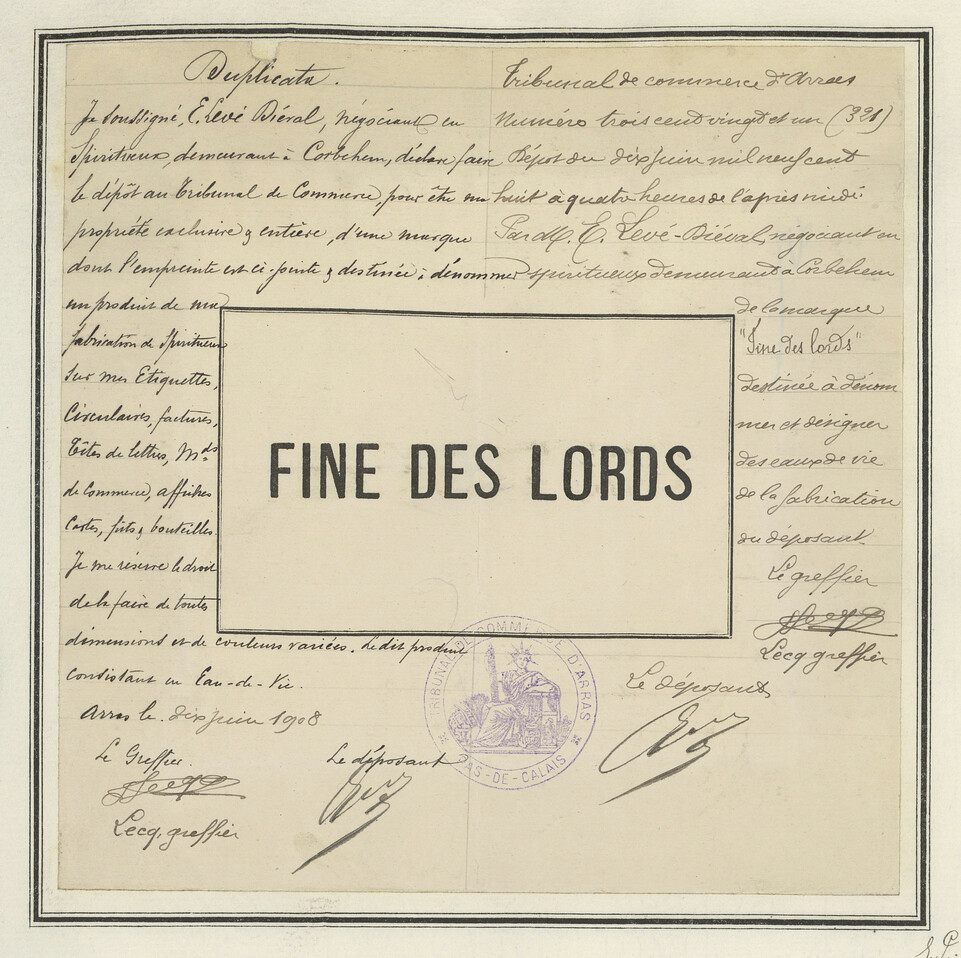 Duplicata.
Je soussigné, E. Levé Biéval, négociant en
Spiritueux, demeurant à Corbehem, déclare faire
le dépôt au Tribunal de Commerce, pour être ma
propriété exclusive & entière, d'une marque
dont l'empreinte est ci-jointe & destinée à dénommer
un produit de ma
fabrication de Spiritueux
Sur mes Etiquettes,
Circulaires, factures,
Têtes de lettres, Mds
de Commerce, affiches
Cartes, fûts & bouteilles.
Je me réserve le droit
de la faire de toutes
dimensions et de couleurs variées. Le dit produit
consistant en Eau-de-Vie.
Arras le dix juin 1908
Le Greffier.
Lecq, greffier
Le déposant
FINE DES LORDS
Tribunal de commerce d'Arras
Numéro trois cent vingt et un (321)
Dépôt du dix juin mil neuf cent
huit à quatre heures de l'après midi
Par M. E. Levé-Biéval, négociant en
spiritueux demeurant à Corbehem
de la marque
"Fine des lords"
destinée à dénom
mer et désigner
des eaux de vie
de la fabrication
du déposant.
Le greffier
Lecq greffier
Le déposant
TRIBUNAL DE COMMERCE D'ARRAS
PAS-DE-CALAIS